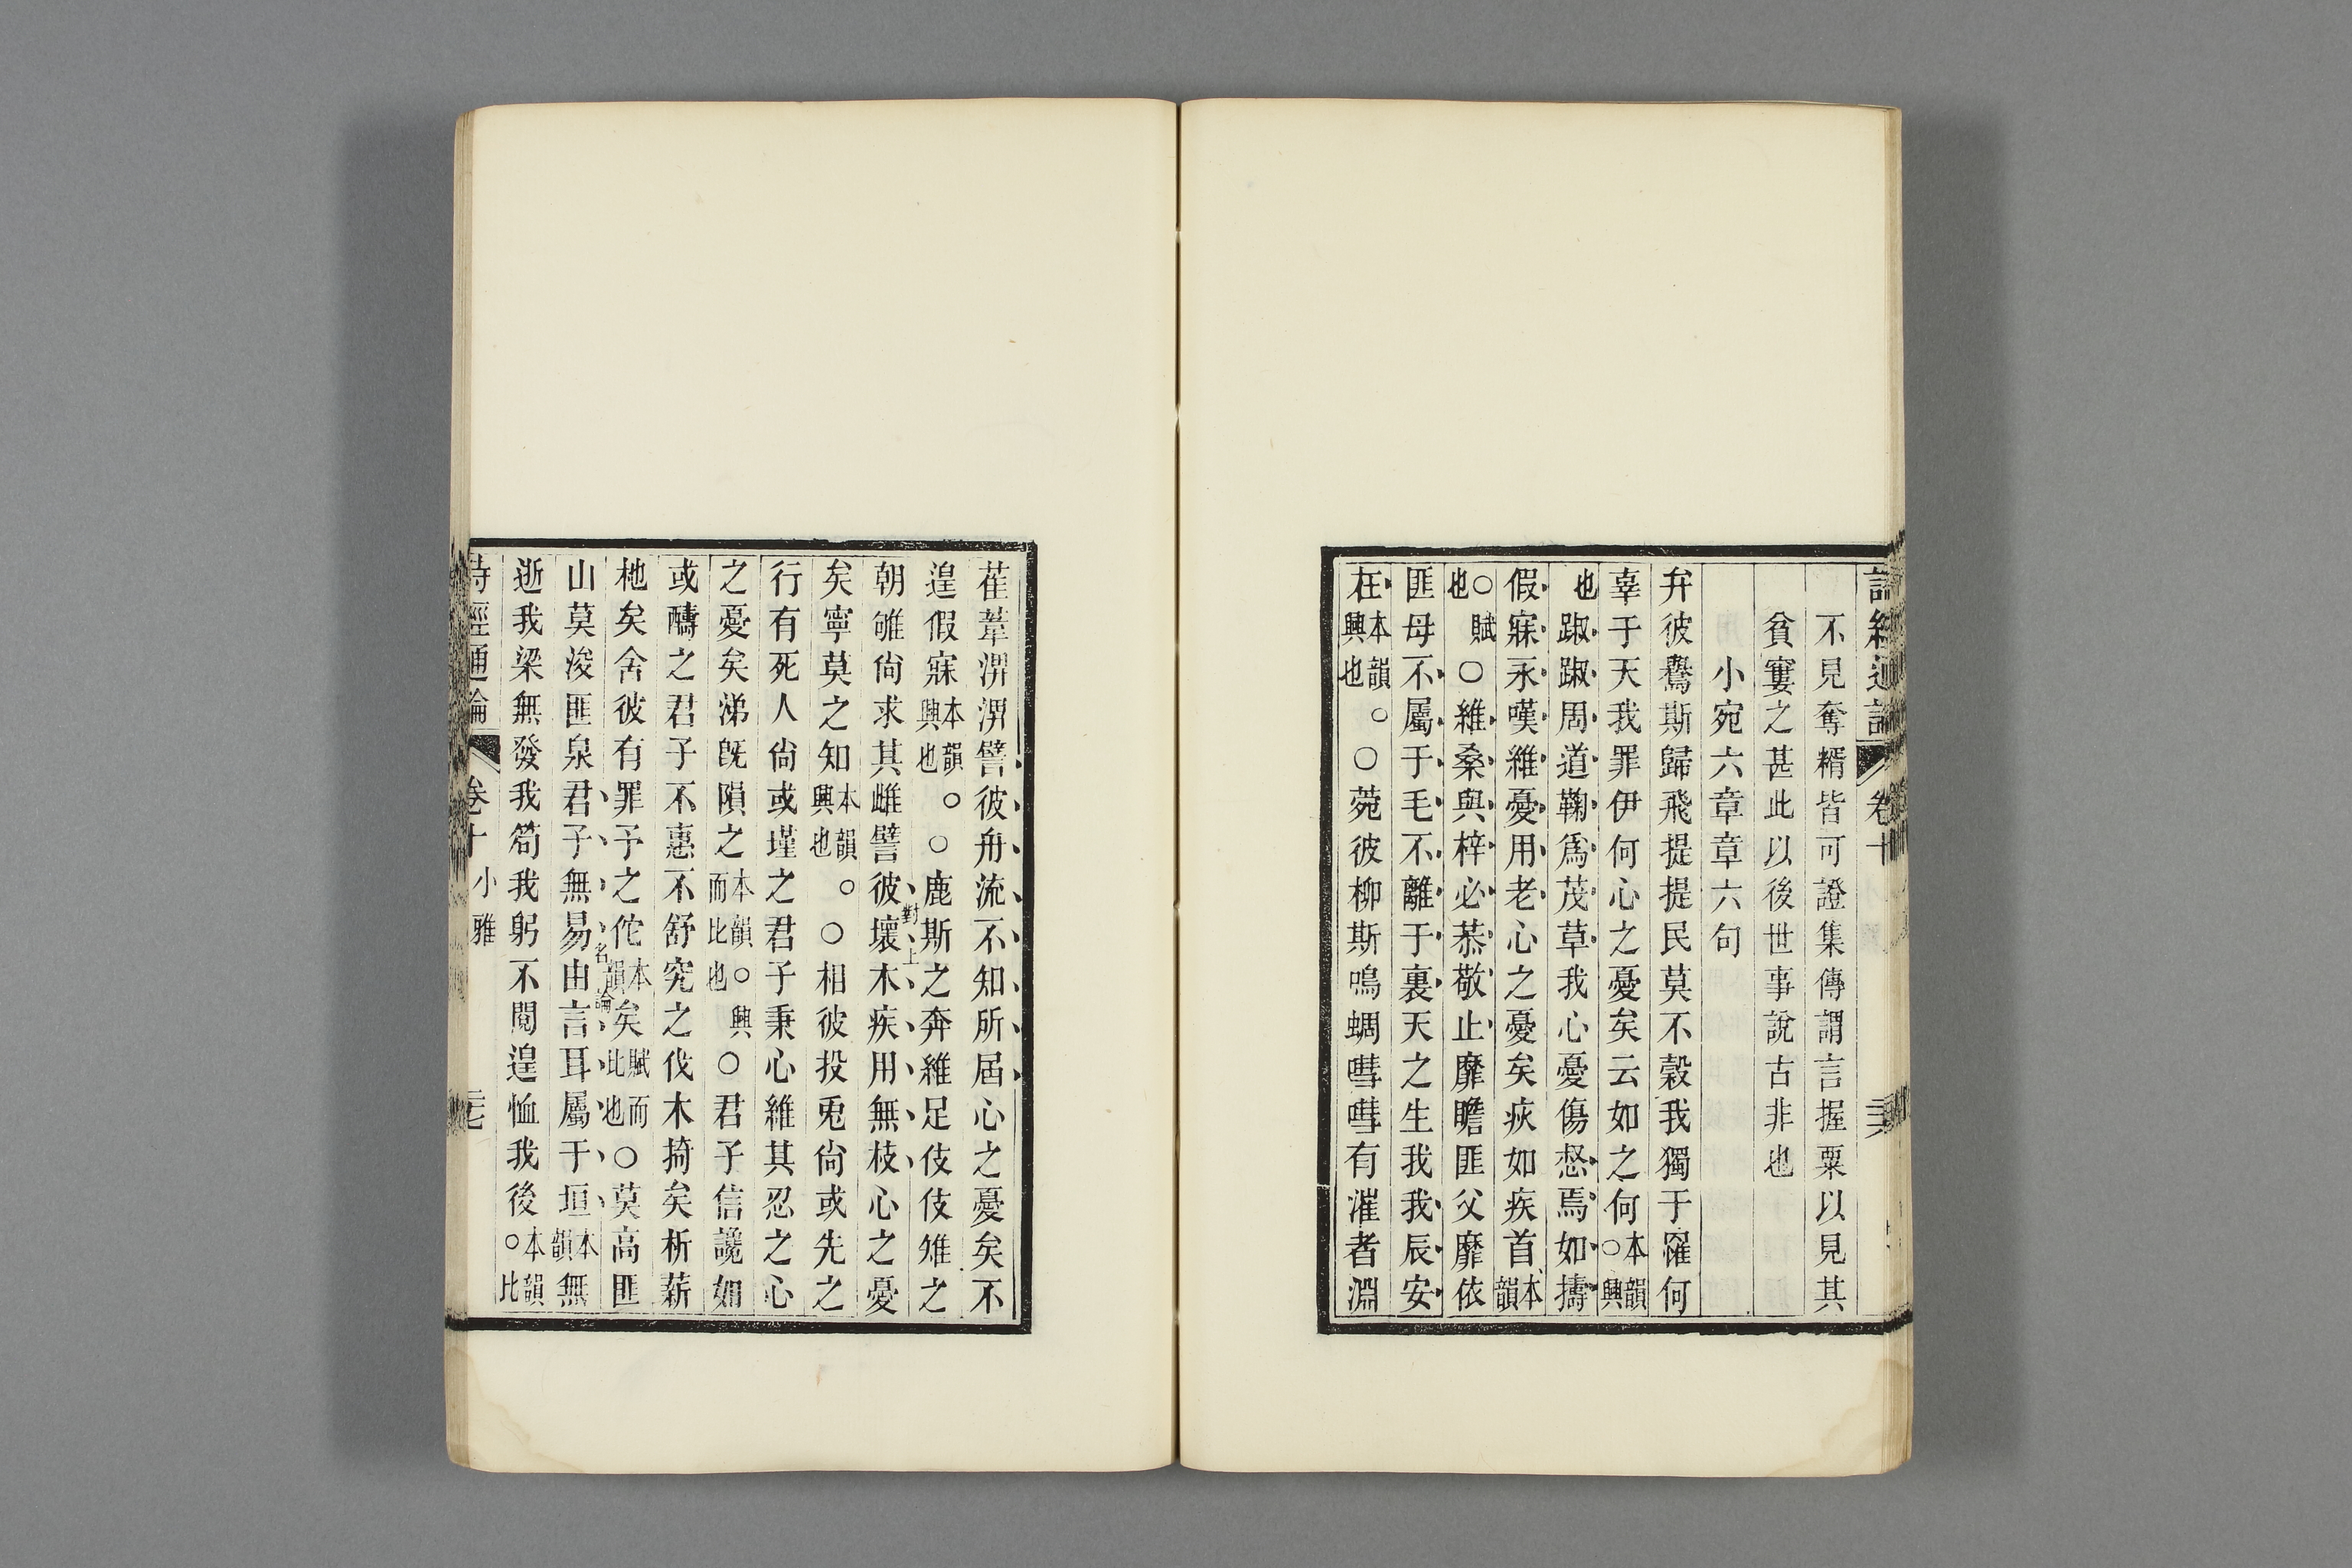 詩經通論 卷十 三六
不見奪糈皆可證集傳謂言握粟以見其
貧窶之甚此以後世事說古非也
小宛六章章六句
弁彼鸒斯歸飛提提民莫不穀我獨于罹何
辜于天我罪伊何心之憂矣云如之何本韻○興
也踧踧周道鞠為茂草我心憂傷惄焉如擣
假寐永嘆維憂用老心之憂矣疢如疾首本韻
○賦也○維桑與梓必恭敬止靡瞻匪父靡依
匪母不屬于毛不離于裏天之生我我辰安
在本韻。興也○菀彼柳斯鳴蜩嘒嘒有漼者淵
萑葦淠淠譬彼舟流不知所屆心之憂矣不
遑假寐本韻。興也○鹿斯之奔維足伎伎雉之
朝雊尙求其雌譬彼壞木疾用無枝心之憂
對上
矣寧莫之知本韻。興也○相彼投兎尙或先之
行有死人尙或墐之君子秉心維其忍之心
之憂矣涕旣隕之本韻。興而比也○君子信讒如
或醻之君子不惠不舒究之伐木掎矣析薪
杝矣舍彼有罪予之佗本韻矣賦而比也○莫高匪
山莫浚匪泉君子無易由言耳屬于垣本韻無
名論
逝我梁無發我笱我躬不閱遑恤我後本韻。比
詩經通論 卷十 小雅 三七